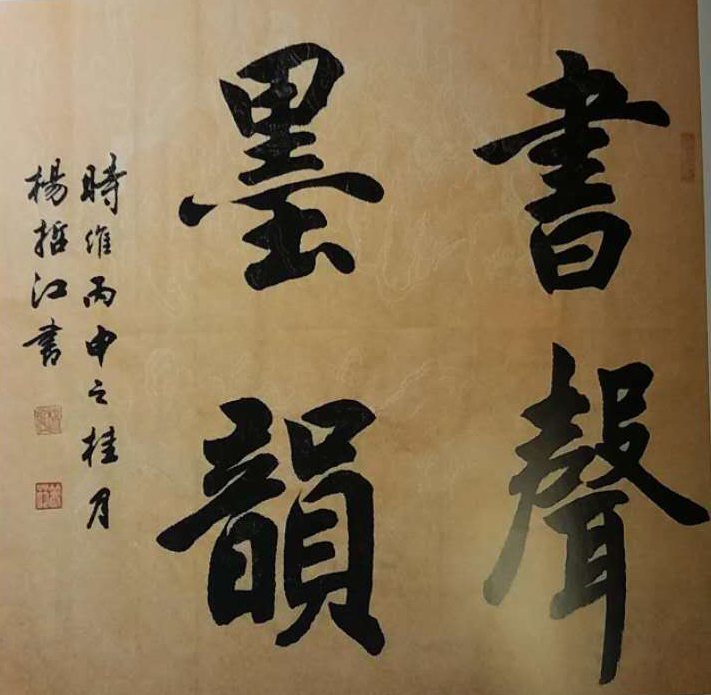 書聲
墨韻
時維丙申之桂月
楊哲江書